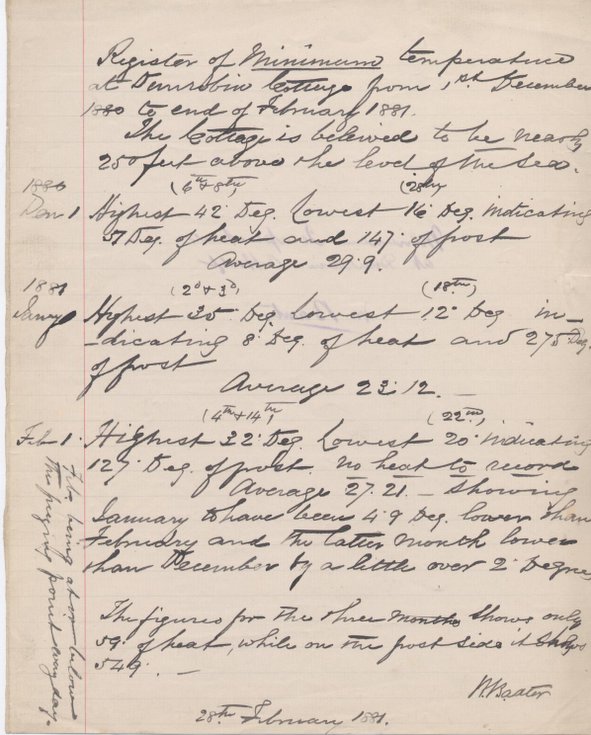 Register of Minimum temperature
at Dunrobin Cottage from 1st December
1880 to end of February 1881.
The Cottage is believed to be nearly
250 feet above the level of the Sea.
1880
(6th & 8th) (28th)
Decr 1 Highest 42° Deg. Lowest 16° Deg. indicating
51 Deg. of heat and 147° of frost
Average 29.9.
1881
(2d & 3d) (18th)
Jany Highest 35° Deg. Lowest 12° Deg in-
-dicating 8 Deg. of heat and 275 Deg.
of frost
Average 23.12. -
(4th & 14th) (22nd)
Feb 1. Highest 32° Deg. Lowest 20° indicating
127 Deg. of frost. no heat to record
Average 27.21. - Showing
January to have been 4.9 Deg. lower than
February and the latter month lower
than December by a little over 2° Degrees
Feb. being at or below
the freezing point every day.
The figures for the three months shows only
59° of heat, while on the frost side it shows
549°. -
Baxter
28th February 1881.